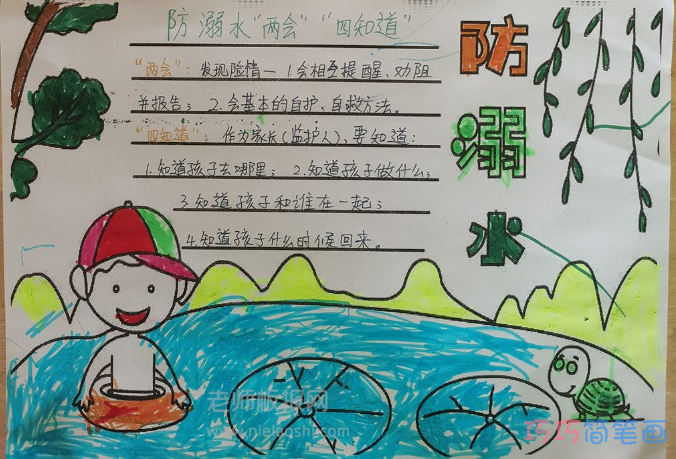 防溺水“两会”“四知道”
“两会”：发现险情一 1.会相互提醒、劝阻
并报告；2.会基本的自护、自救方法。
“四知道”：作为家长（监护人）、要知道：
1.知道孩子去哪里；2.知道孩子做什么；
3.知道孩子和谁在一起；
4.知道孩子什么时候回来。
防
溺
水
老师板报网
www.nielaoshi.com
巧巧简笔画